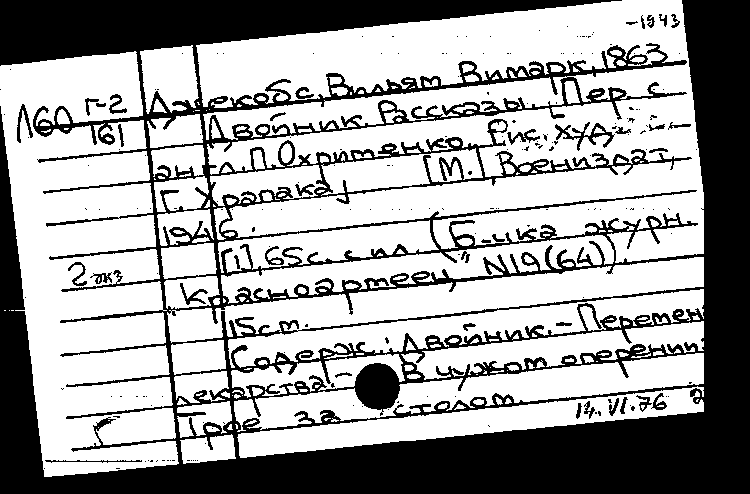 -1943
Джекобс, Вильям Вимарк, 1863
160 Г-2
161
Двойник. Рассказы. [Пер. с
англ. П. Охрименко. Рис. худ.
Г. Храпака]. [М.], Воениздат,
1946.
[1], 65с. с ил. (Б-чка журн.
2 экз
"Красноармеец" N19 (64)).
15см.
Содерж.: Двойник. - Перемен
лекарства. - В чужом оперении.
Трое за столом.
14.VI.76 2